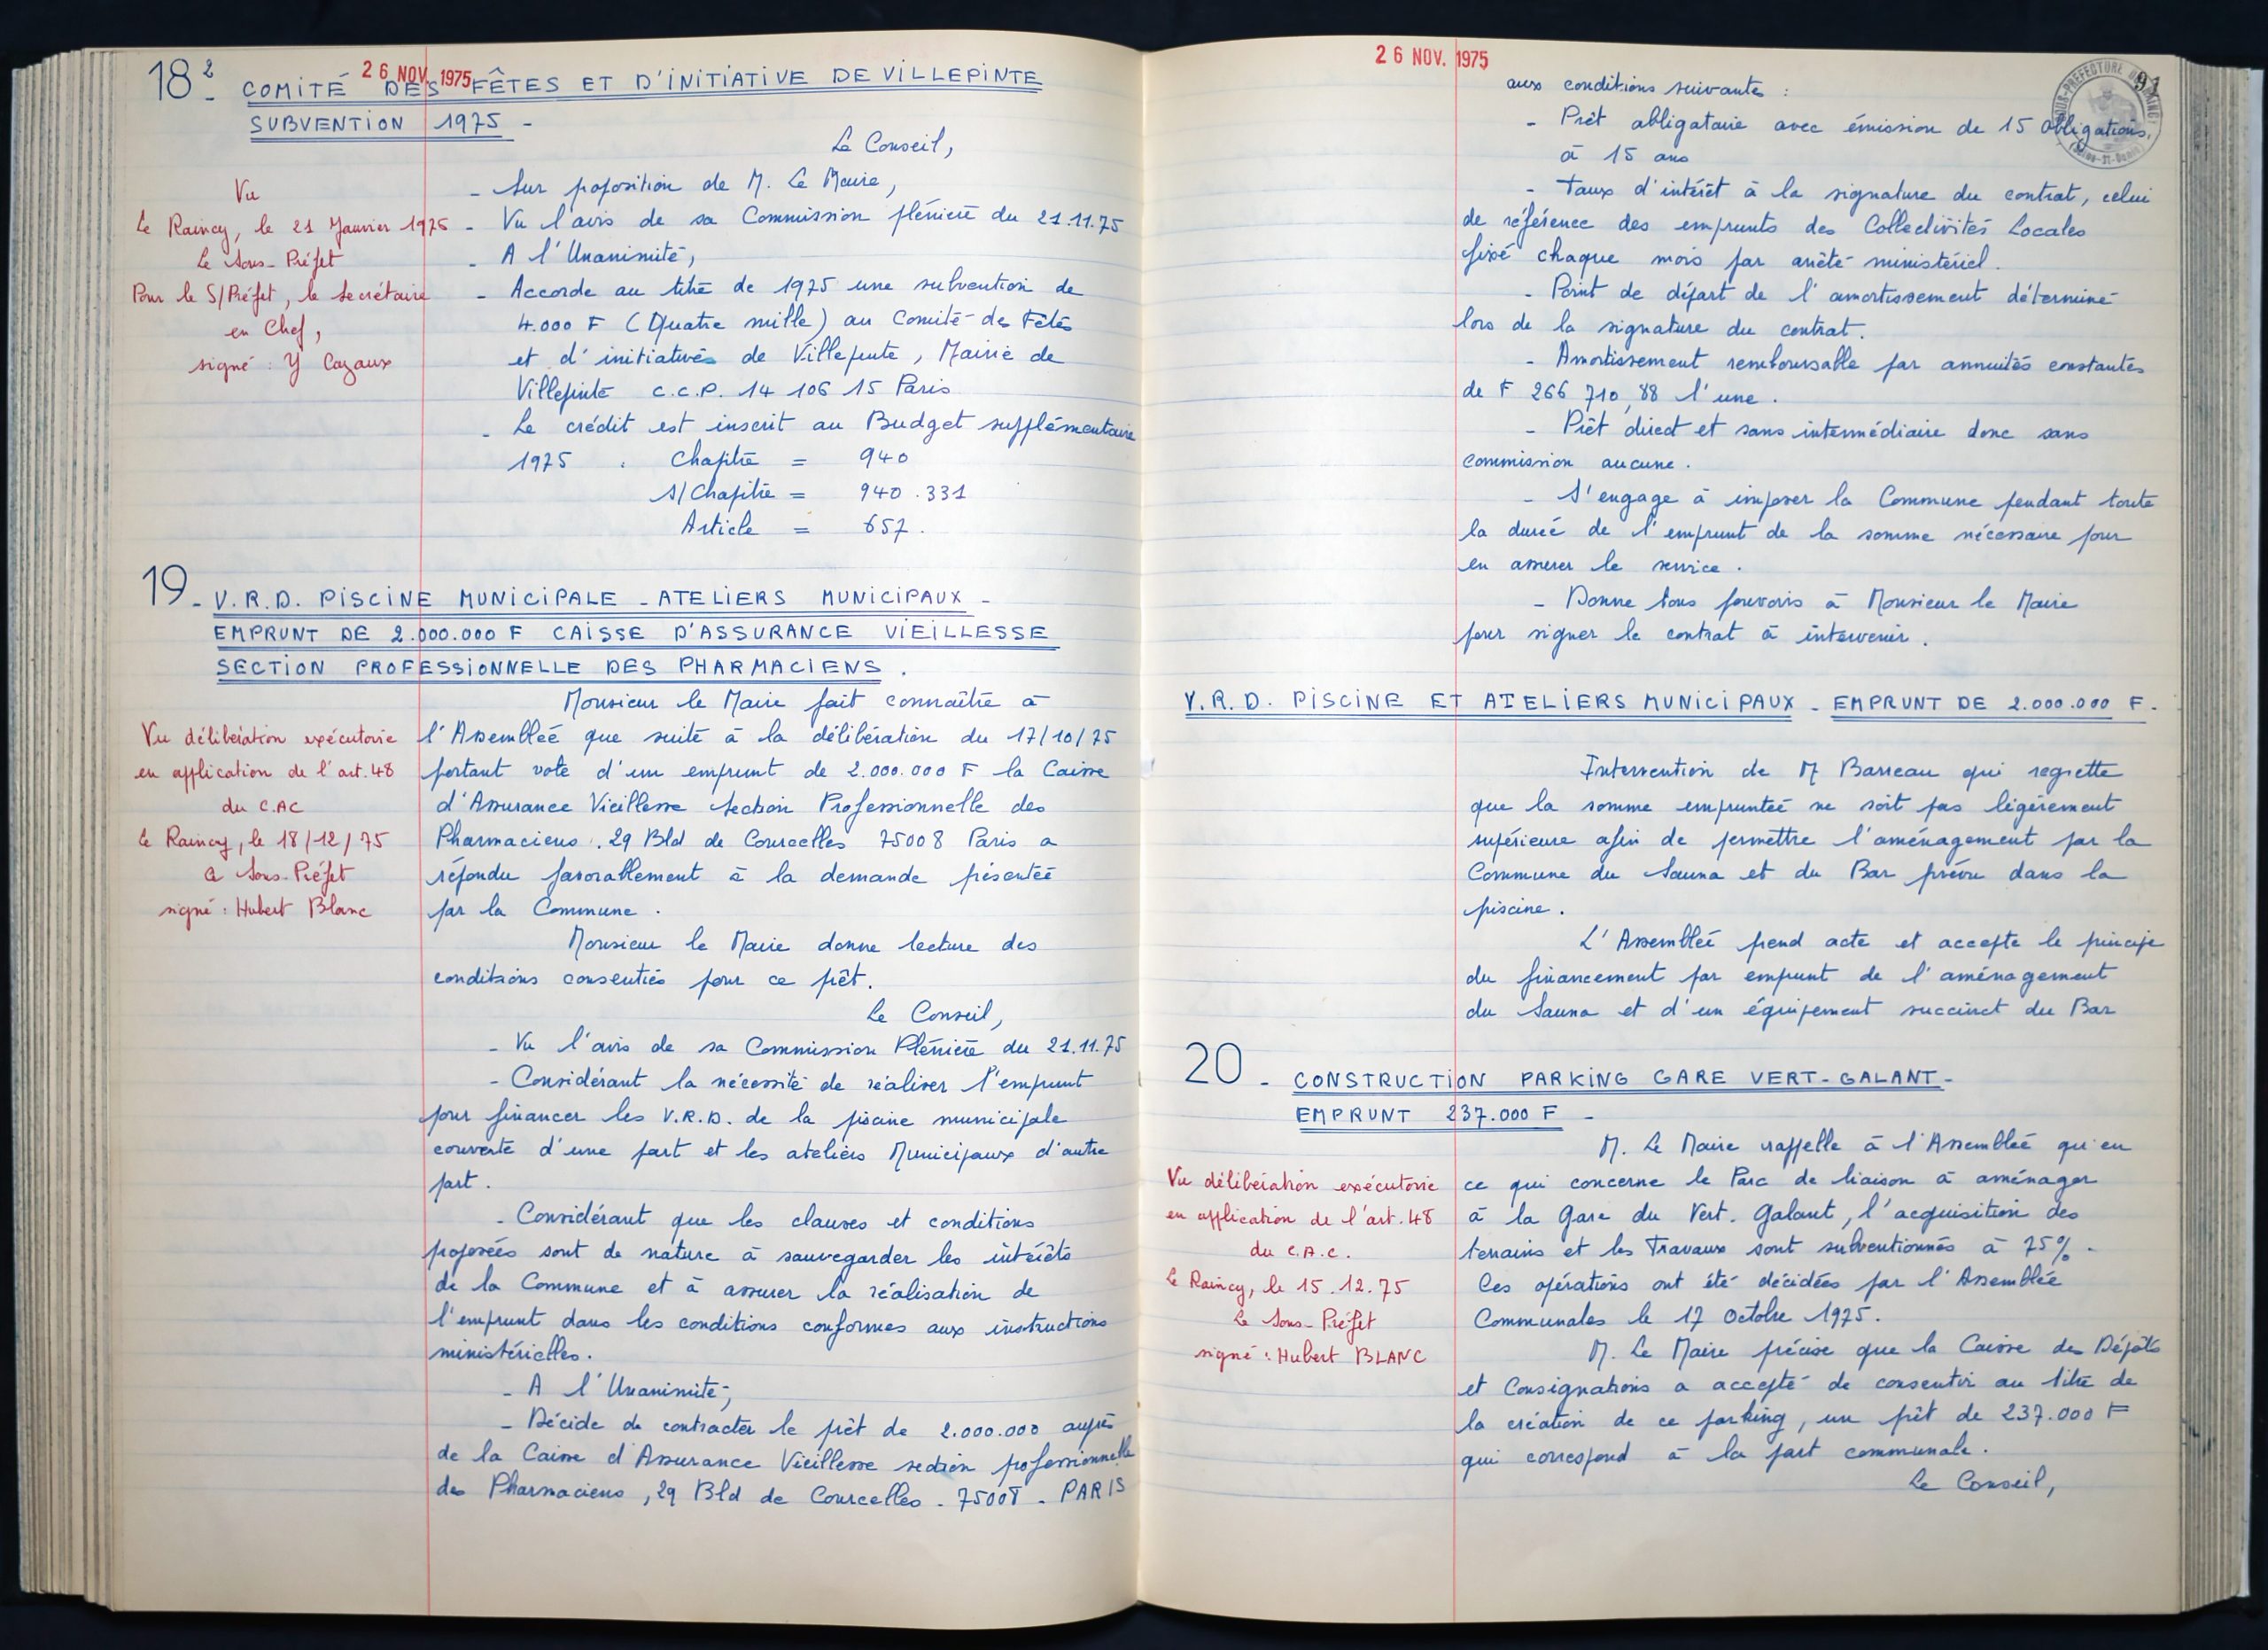 26 NOV. 1975
18² - COMITÉ DES FÊTES ET D'INITIATIVE DE VILLEPINTE
SUBVENTION 1975 -
Le Conseil,
- Sur proposition de M. Le Maire,
- Vu l'avis de sa Commission plénière du 21.11.75
- A l'Unanimité,
- Accorde au titre de 1975 une subvention de
4.000 F (Quatre mille) au Comité des Fêtes
et d'initiatives de Villepinte, Mairie de
Villepinte C.C.P. 14 106 15 Paris
- Le crédit est inscrit au Budget supplémentaire
1975 . Chapitre = 940
S/Chapitre = 940.331
Article = 657.
Vu
Le Raincy, le 21 Janvier 1975
Le Sous-Préfet
Pour le S/Préfet, le Secrétaire
en Chef,
signé : Y Cazaux
19 - V.R.D. PISCINE MUNICIPALE - ATELIERS MUNICIPAUX -
EMPRUNT DE 2.000.000 F CAISSE D'ASSURANCE VIEILLESSE
SECTION PROFESSIONNELLE DES PHARMACIENS.
Monsieur le Maire fait connaître à
l'Assemblée que suite à la délibération du 17/10/75
portant vote d'un emprunt de 2.000.000 F la Caisse
d'Assurance Vieillesse Section Professionnelle des
Pharmaciens. 29 Bld de Courcelles 75008 Paris a
répondu favorablement à la demande présentée
par la Commune.
Monsieur le Maire donne lecture des
conditions consenties pour ce prêt.
Le Conseil,
- Vu l'avis de sa Commission Plénière du 21.11.75
- Considérant la nécessité de réaliser l'emprunt
pour financer les V.R.D. de la piscine municipale
couverte d'une part et les ateliers Municipaux d'autre
part.
- Considérant que les clauses et conditions
proposées sont de nature à sauvegarder les intérêts
de la Commune et à assurer la réalisation de
l'emprunt dans les conditions conformes aux instructions
ministérielles.
- A l'Unanimité,
- Décide de contracter le prêt de 2.000.000 auprès
de la Caisse d'Assurance Vieillesse section professionnelle
des Pharmaciens, 29 Bld de Courcelles - 75008 - PARIS
Vu délibération exécutoire
en application de l'art. 48
du C.AC
Le Raincy, le 18/12/75
Le Sous-Préfet
signé : Hubert Blanc
26 NOV. 1975
91
SOUS-PRÉFECTURE DU RAINCY
(Seine-St-Denis)
aux conditions suivantes :
- Prêt obligataire avec émission de 15 obligations,
à 15 ans
- Taux d'intérêt à la signature du contrat, celui
de référence des emprunts des Collectivités Locales
fixé chaque mois par arrêté ministériel.
- Point de départ de l'amortissement déterminé
lors de la signature du contrat.
- Amortissement remboursable par annuités constantes
de F 266 710,88 l'une.
- Prêt direct et sans intermédiaire donc sans
commission aucune.
- S'engage à imposer la Commune pendant toute
la durée de l'emprunt de la somme nécessaire pour
en assurer le service.
- Donne tous pouvoirs à Monsieur le Maire
pour signer le contrat à intervenir.
V.R.D. PISCINE ET ATELIERS MUNICIPAUX - EMPRUNT DE 2.000.000 F.
Intervention de M Barreau qui regrette
que la somme empruntée ne soit pas légèrement
supérieure afin de permettre l'aménagement par la
Commune du Sauna et du Bar prévu dans la
piscine.
L'Assemblée prend acte et accepte le principe
du financement par emprunt de l'aménagement
du Sauna et d'un équipement succinct du Bar
20 - CONSTRUCTION PARKING GARE VERT-GALANT -
EMPRUNT 237.000 F -
M. Le Maire rappelle à l'Assemblée qu'en
ce qui concerne le Parc de liaison à aménager
à la Gare du Vert-Galant, l'acquisition des
terrains et les Travaux sont subventionnés à 75% -
Ces opérations ont été décidées par l'Assemblée
Communales le 17 Octobre 1975.
M. Le Maire précise que la Caisse des Dépôts
et Consignations a accepté de consentir au titre de
la création de ce parking, un prêt de 237.000 F
qui correspond à la part communale.
Le Conseil,
Vu délibération exécutoire
en application de l'art. 48
du C.A.C.
Le Raincy, le 15.12.75
Le Sous-Préfet
signé : Hubert BLANC